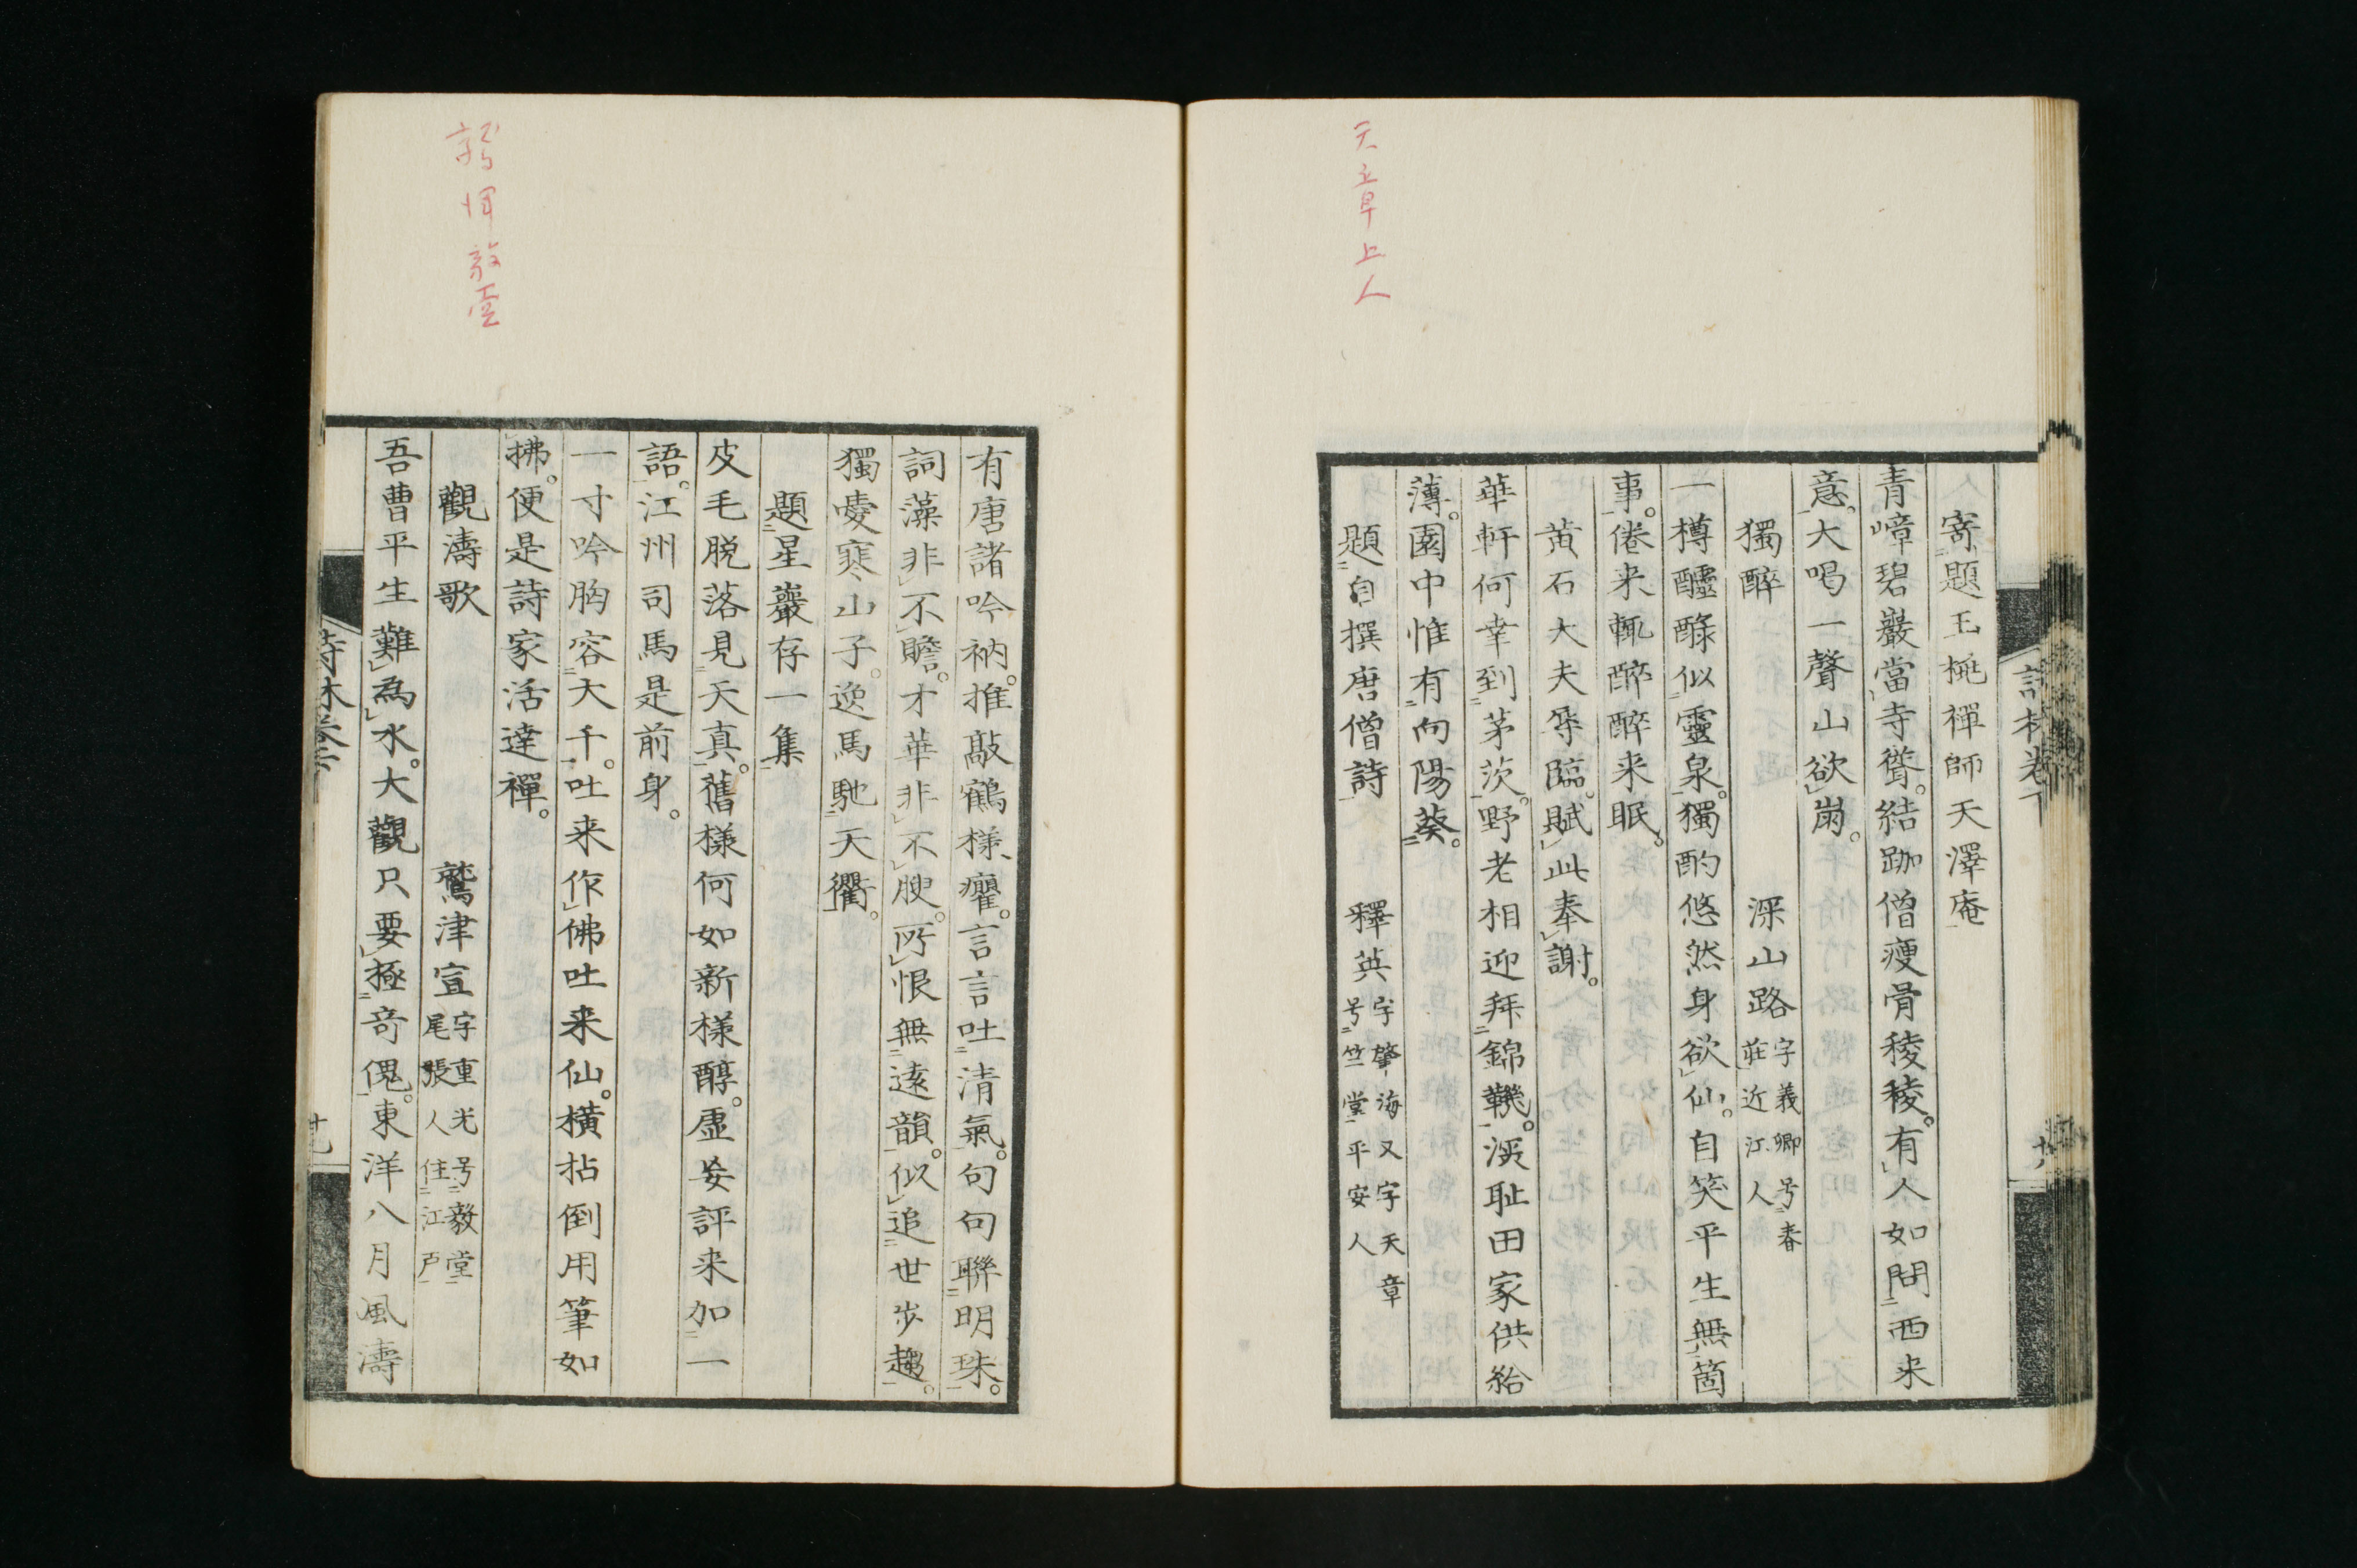 天章上人
寄題玉梔禪師天澤庵
青嶂碧巖當寺聳。結跏僧瘦骨稜稜。有人如問西来
意。大喝一聲山欲崩。
獨醉
深山路
字義卿号春
莊近江人
一樽醽醁似靈泉。獨酌悠然身欲仙。自笑平生無箇
事。倦来輒醉醉来眠。
黄石大夫辱臨。賦此奉謝。
華軒何幸到茅茨。野老相迎拜錦鞿。深耻田家供給
薄。園中惟有向陽葵。
題自撰唐僧詩
釋英
字肇海又字天章
号竺堂平安人
鷲津毅堂
有唐諸吟衲。推敲鶴様癯。言言吐清氣。句句聯明珠。
詞藻非不贍。才華非不腴。所恨無遠韻。似追世歩趨。
獨憂寒山子。逸馬馳天衢。
題星巖存一集
皮毛脱落見天真。舊様何如新様醇。虚妄評来加一
語。江州司馬是前身。
一寸吟胸容大千。吐来作佛吐来仙。横拈倒用筆如
拂。便是詩家活達禪。
觀濤歌
鷲津宣
字重光号毅堂
尾張人住江戸
吾曹平生難為水。大觀只要極奇傀。東洋八月風濤